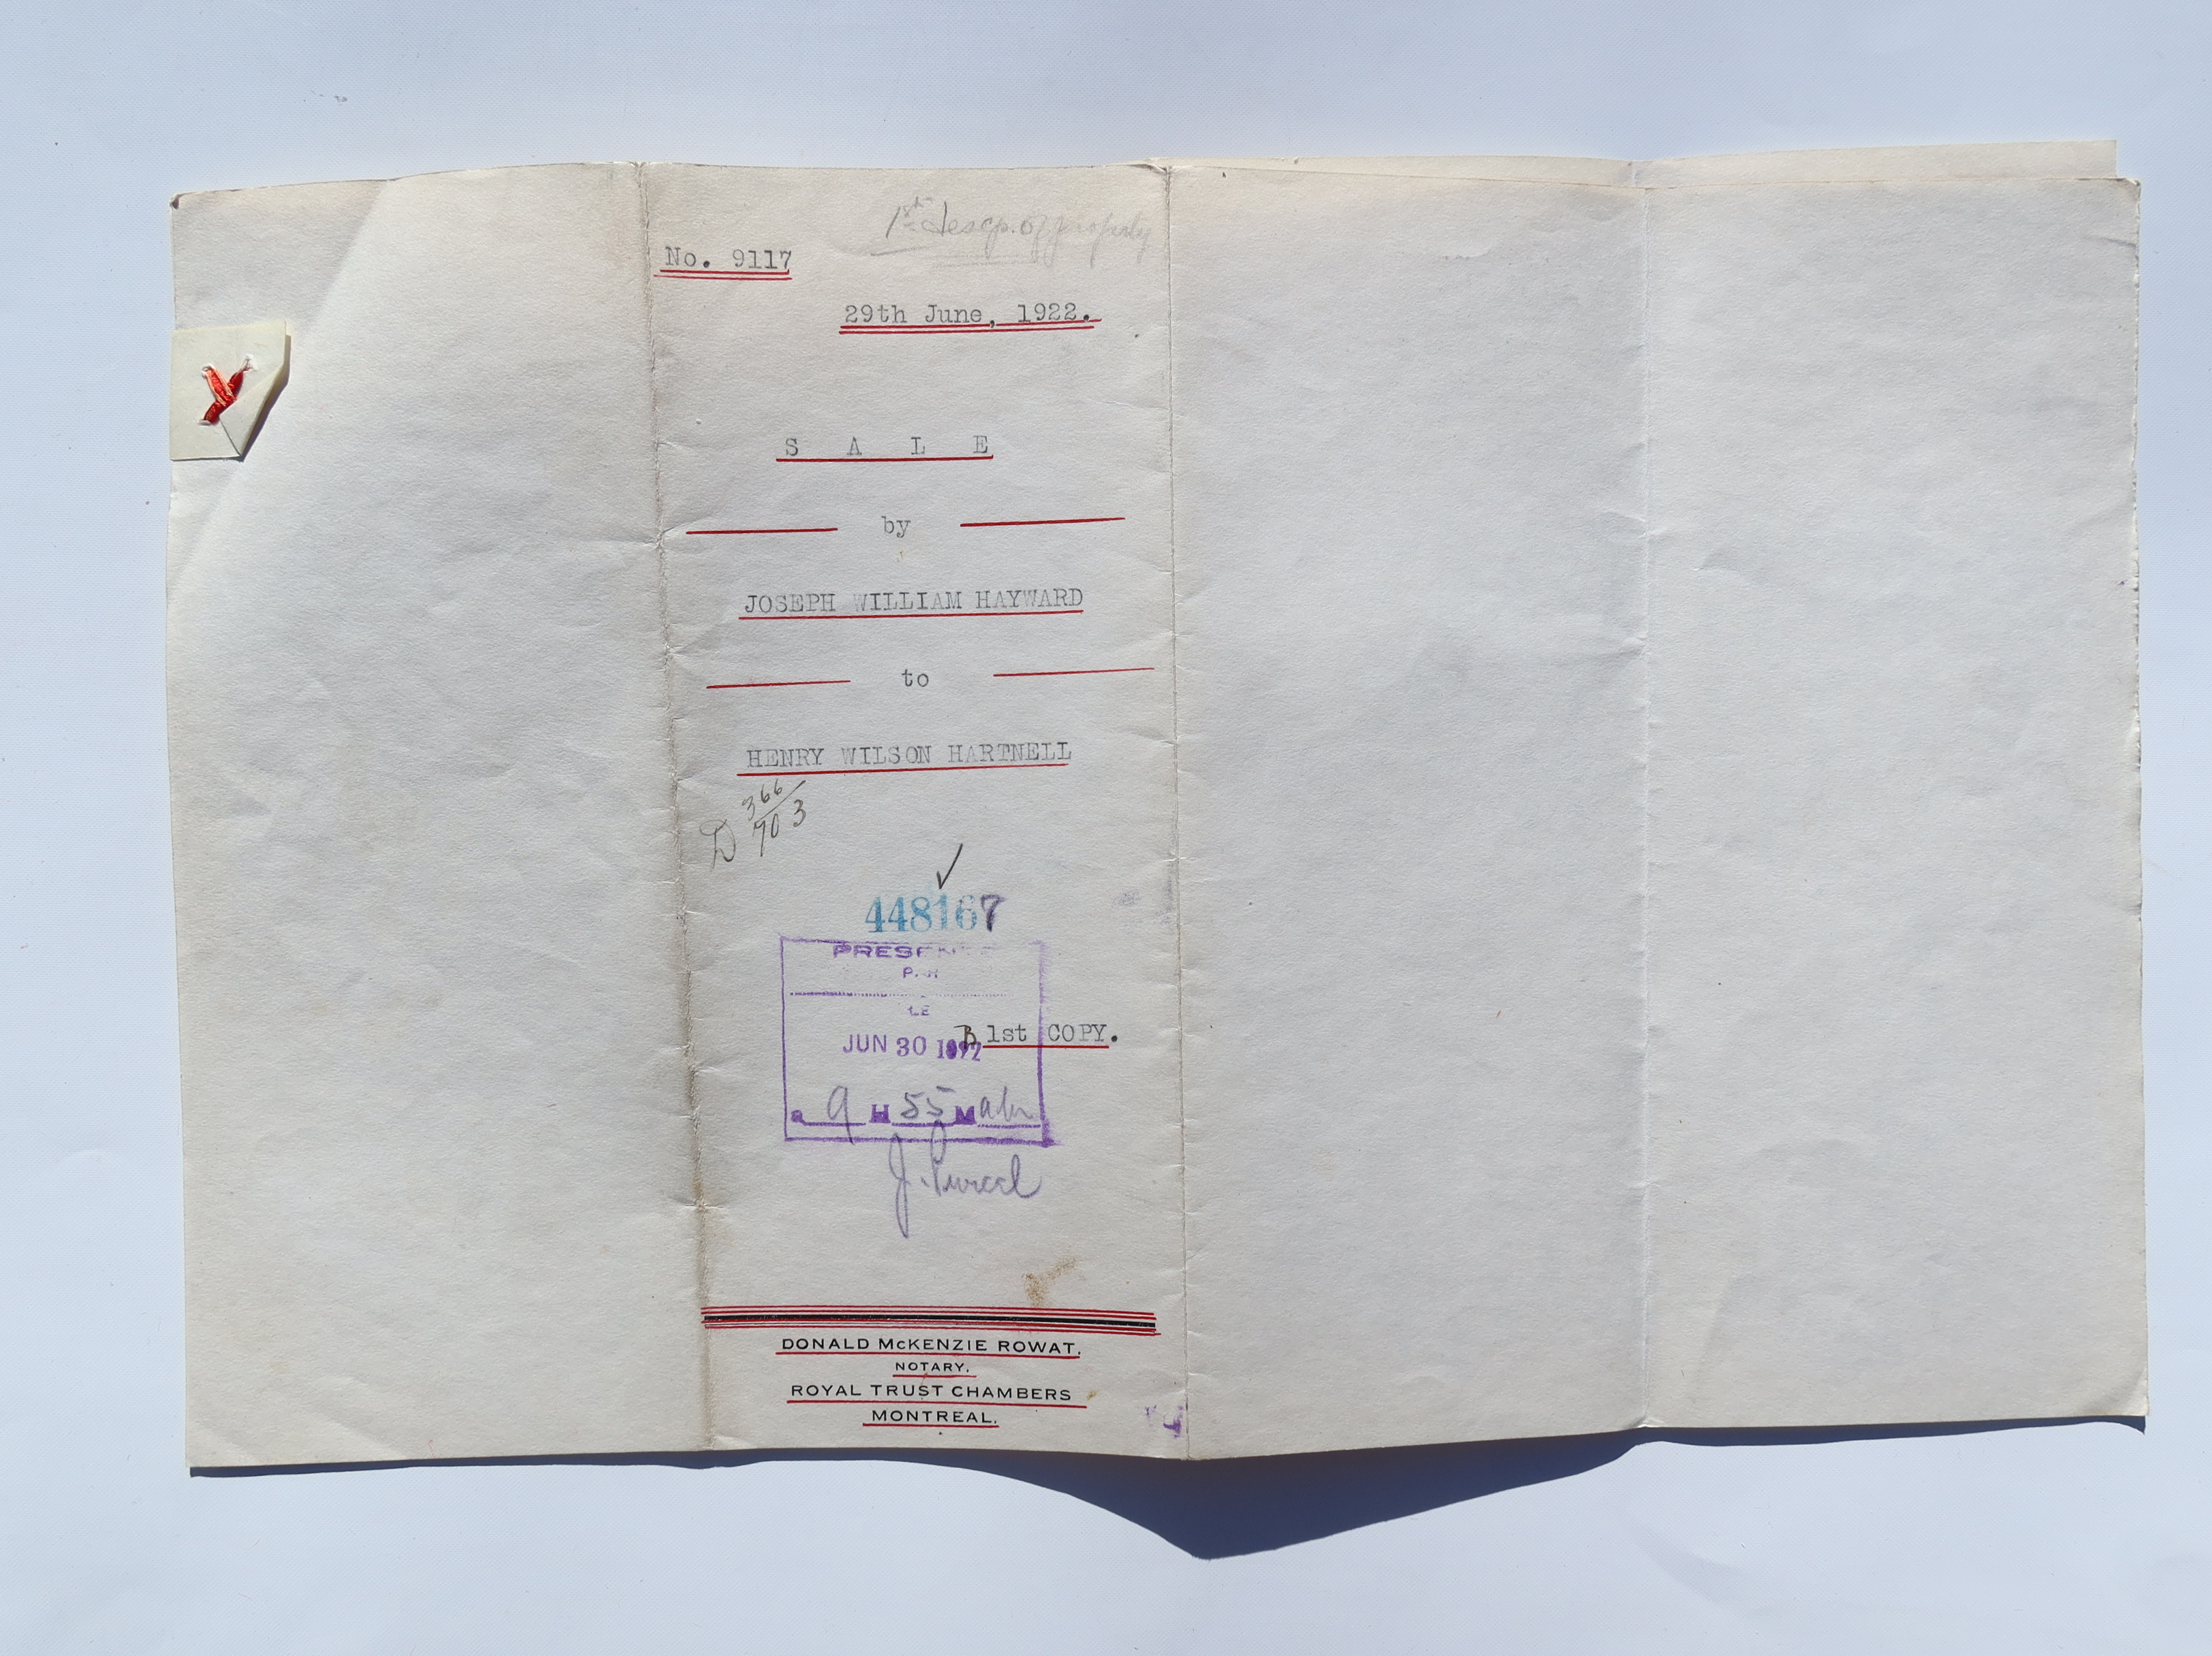 1st descp. of property
No. 9117
29th June, 1922.
S A L E
by
JOSEPH WILLIAM HAYWARD
to
HENRY WILSON HARTNELL
D 366/703
448167
PRESENTE
PAR
LE
JUN 30 1922
B 1st COPY.
a 9 H 55 M am
J.
DONALD McKENZIE ROWAT,
NOTARY,
ROYAL TRUST CHAMBERS
MONTREAL.